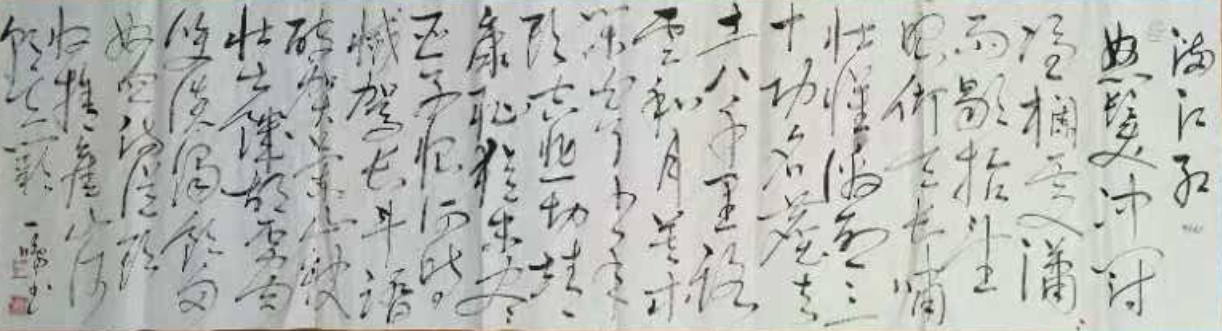 满江红
怒髮冲冠
凭栏处潇
雨歇抬望
眼仰天长啸
壮怀激烈三
十功名尘与
土八千里路
云和月莫等
闲白了少年
头空悲切靖
康耻犹未雪
臣子恨何时
滅驾长车踏
破贺兰山缺
壮志饥餐胡虏肉
笑谈渴饮匈
奴血待从头
收拾旧山河
朝天阙